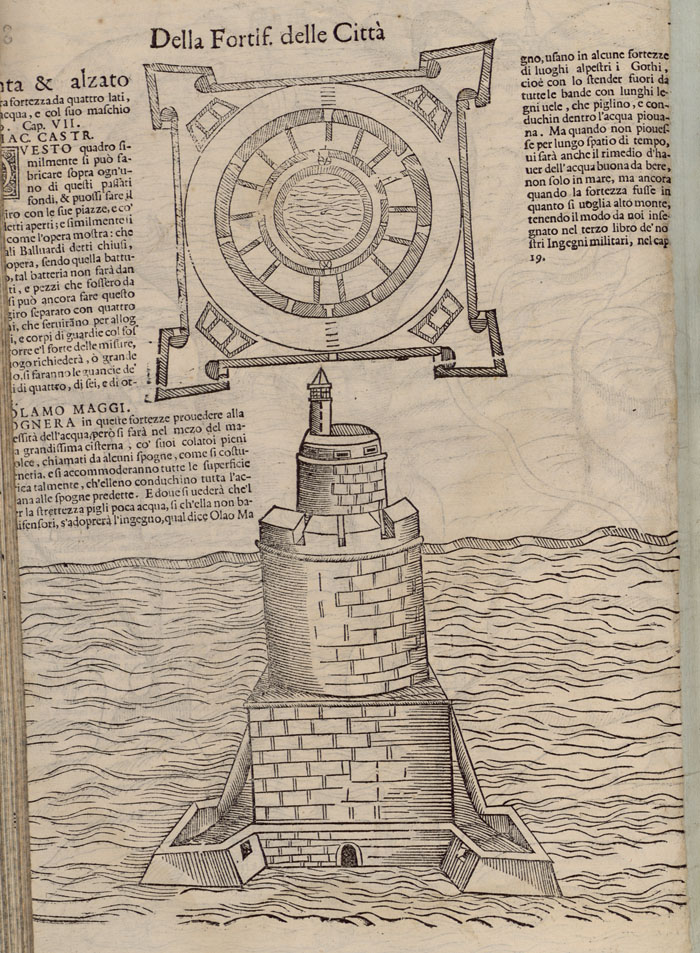 Della Fortif. delle Città
nta & alzato
ra fortezza da quattro lati,
acqua, e col suo maschio
Cap. VII.
IAC. CASTR.
VESTO quadro si-
milmente si può fa-
bricare sopra ogn'u-
no di questi passati
fondi, & puossi fare il
iro con le sue piazze, e co'
letti aperti; e similmente ii
come l'opera mostra: che
ali Balluardi detti chiusi,
opera, sendo quella battu-
o, tal batteria non farà dan
ti, e pezzi che fossero da
si può ancora fare questo
giro separato con quattro
i, che seruirãno per allog
i, e corpi di guardie col fos
orre e'l forte delle misure,
ogo richiederà, ò grande
o, si faranno le guancie de'
i di quattro, di sei, e di ot-
OLAMO MAGGI.
OGNERA in queste fortezze prouedere alla
essità dell'acqua, però si farà nel mezo del ma-
a grandissima cisterna, co' suoi colatoi pieni
olce, chiamati da alcuni spogne, come si costu-
eneria, e si accommoderanno tutte le superficie
rica talmente, ch'elleno conduchino tutta l'ac-
ana alle spogne predette. E doue si uederà che'l
r la strettezza pigli poca acqua, si ch'ella non ba-
difensori, s'adoprerà l'ingegno, qual dice Olao Ma
gno, usano in alcune fortezze
di luoghi alpestri i Gothi,
cioè con lo stender fuori da
tutte le bande con lunghi le-
gni uele, che piglino, e con-
duchin dentro l'acqua pioua-
na. Ma quando non piouesse
se per lungo spatio di tempo,
ui sarà anche il rimedio d'ha-
uer dell'acqua buona da bere,
non solo in mare, ma ancora
quando la fortezza fusse in
quanto si uoglia alto monte,
tenendo il modo da noi inse
gnato nel terzo libro de' no
stri Ingegni militari, nel cap
19.